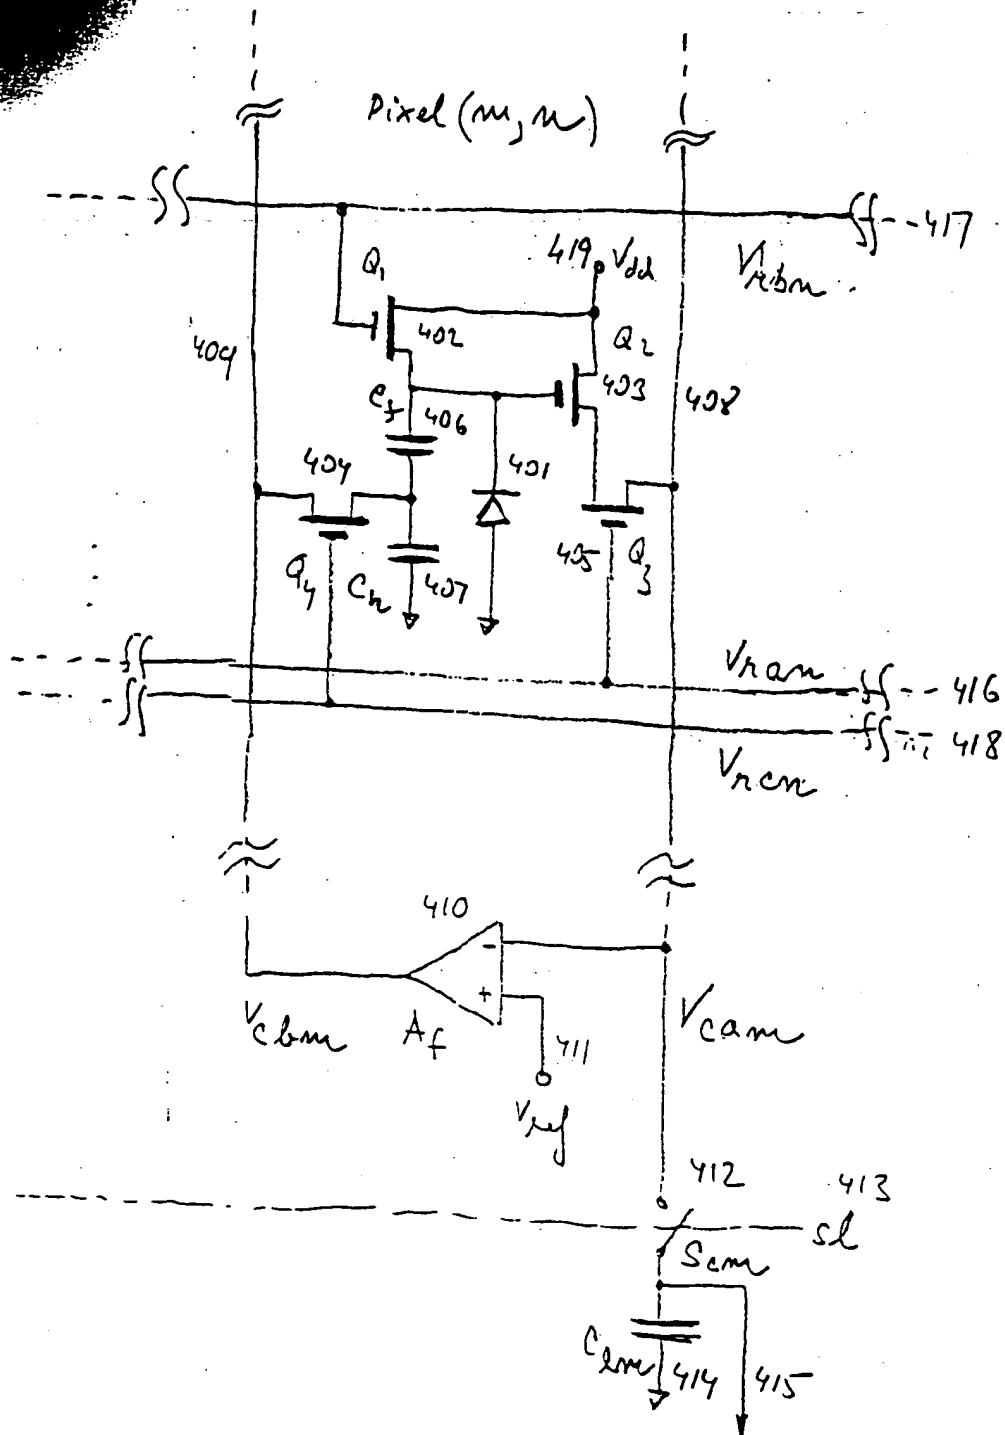 Pixel (m,n)
417
419 Vdd
Vrbn
Q1
402
Q2
409
403
408
Cf
406
404
401
405
Q3
Q4
Cr
407
Vran
416
418
Vrcn
410
-
+
Vcbm
Af
Vcam
411
Vref
412
413
sl
Scm
414
415